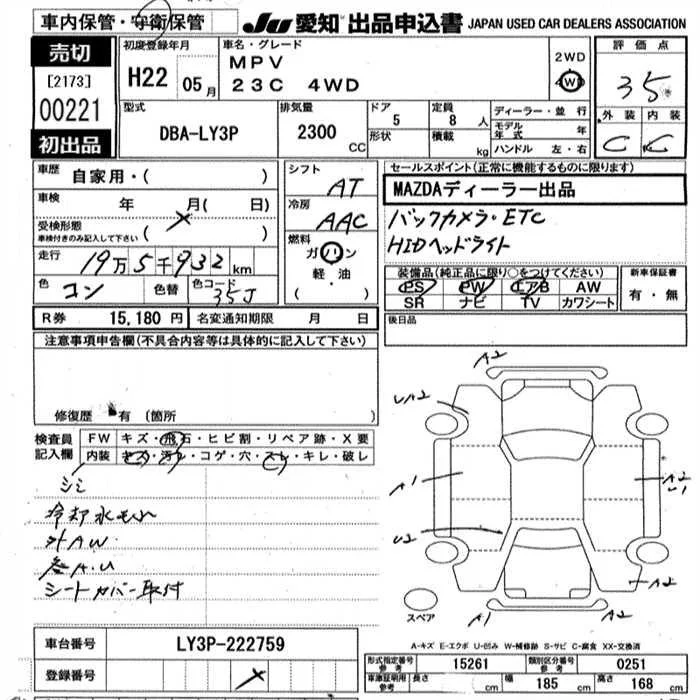 車内保管・守衛保管
JU 愛知 出品申込書 JAPAN USED CAR DEALERS ASSOCIATION
売切
[2173]
00221
初出品
初度登録年月
H22 05月
車名・グレード
MPV
23C 4WD
2WD
4WD
評価点
3.5
外装 内装
C C
型式
DBA-LY3P
排気量
2300 CC
ドア
5
形状
定員
8 人
積載
kg
ディーラー・並行
モデル年式 年
ハンドル 左・右
車歴
自家用・( )
車検
年 月( 日)
受検形態
車検付きのみ記入して下さい ( )
走行
19万5千932 km
色
コン
色替
色コード
35J
シフト
AT
冷房
AAC
燃料
ガソリン
軽・油
( )
セールスポイント(正常に機能するものに限ります)
MAZDAディーラー出品
バックカメラ・ETC
HIDヘッドライト
装備品(純正品に限り○をつけてください)
PS PW エアB AW
SR ナビ TV カワシート
新車保証書
有・無
後日品
R券 15,180 円 名変通知期限 月 日
注意事項申告欄(不具合内容等は具体的に記入して下さい)
修復歴 有 (箇所 )
検査員記入欄
FW キズ・飛石・ヒビ割・リペア跡・X要
内装 キズ・汚レ・コゲ・穴・スレ・キレ・破レ
シミ
冷却水モレ
外AW
各A.U
シートカバー取付
A2
UA2
A1
A2
U1
U2
A2
A1
A2
スペア
A-キズ E-エクボ U-凹み W-補修跡 S-サビ C-腐食 XX-交換済
車台番号 LY3P-222759
登録番号
形式指定番号 参考 15261 類別区分番号 参考 0251
車庫証明用 参考 長さ cm 幅 185 cm 高さ 168 cm